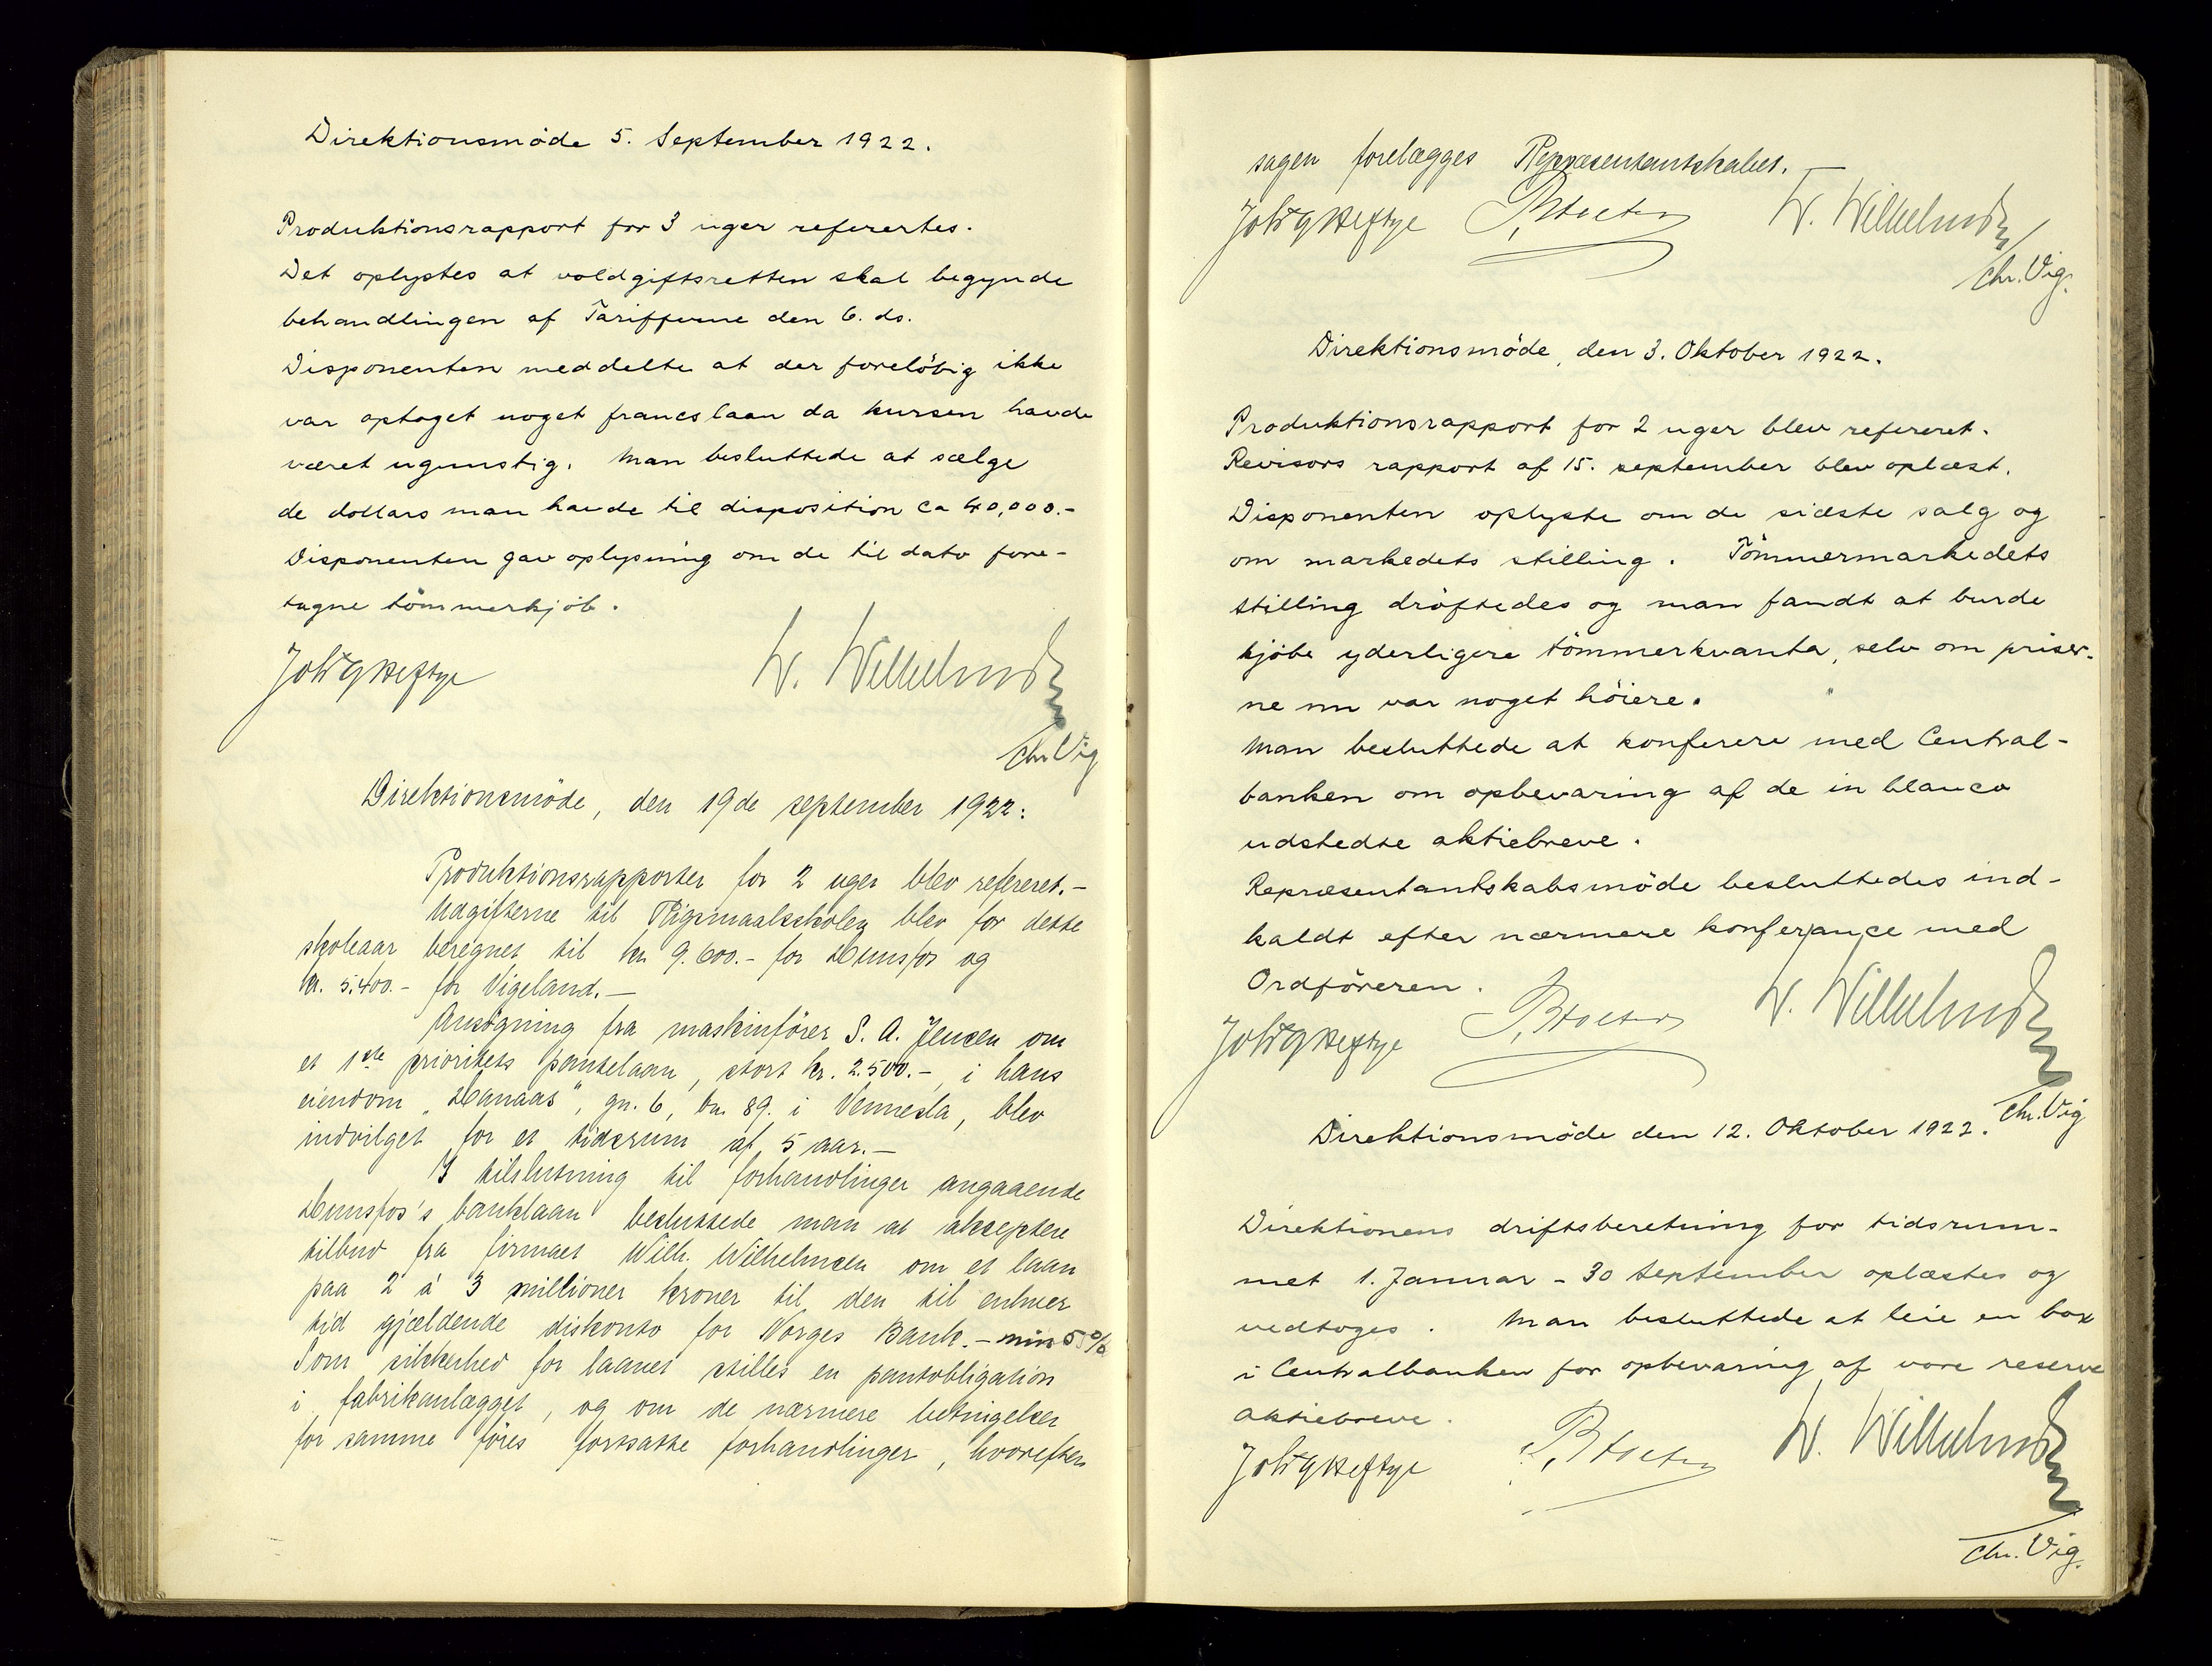 Direktionsmöde 5. September 1922.
Produktionsrapport for 3 uger referertes.
Det oplystes at voldgiftsretten skal begynde
behandlingen af Tarifferne den 6. ds.
Disponenten meddelte at der forelöbig ikke
var optaget noget francslaan da kursen havde
været ugunstig. Man besluttede at sælge
de dollars man havde til disposition ca 40,000.-
Disponenten gav oplysning om de til dato fore-
tagne tömmerkjöb.
W. Wilhelmsen
Chr. Vig
Direktionsmöde, den 19de september 1922:
Produktionsrapporter for 2 uger blev refereret.-
Udgifterne til Rigsmaalsskolen blev for dette
skoleaar beregnet til kr 9.600.- for Hunsfos og
kr. 5.400.- for Vigeland.-
Ansögning fra maskinförer S. A. Jensen om
et 1ste prioritets pantelaan, stort kr. 2.500.-, i hans
eiendom "Hanaas", gn. 6, bn. 89. i Vennesla, blev
indvilget for et tidsrum af 5 aar.-
I tilslutning til forhandlinger angaaende
Hunsfos's banklaan besluttede man at akseptere
tilbud fra firmaet Wilh. Wilhelmsen om et laan
paa 2 à 3 millioner kroner til den til enhver
tid gjældende diskonto for Norges Bank.- min 5 %
Som sikkerhed for laanet stilles en pantobligation
i fabrikanlægget, og om de nærmere betingelser
for samme föres fortsatte forhandlinger, hvorefter
sagen forelægges Repræsentantskabet.-
W. Wilhelmsen
Chr. Vig.
Direktionsmöde, den 3. Oktober 1922.
Produktionsrapport for 2 uger blev refereret.
Revisors rapport af 15. september blev oplæst.
Disponenten oplyste om de sidste salg og
om markedets stilling. Tömmermarkedets
stilling dröftedes og man fandt at burde
kjöbe yderligere tömmerkvanta, selv om priser-
ne nu var noget höiere.
Man besluttede at konferere med Central-
banken om opbevaring af de in blanco
udstedte aktiebreve.
Repræsentantskabsmöde besluttedes ind-
kaldt efter nærmere konferance med
Ordföreren.
W. Wilhelmsen
Chr. Vig
Direktionsmöde den 12. Oktober 1922.
Direktionens driftsberetning for tidsrum-
met 1. Januar - 30 September oplæstes og
vedtoges. Man besluttede at leie en box
i Centralbanken for opbevaring af vore reserve
aktiebreve.
W. Wilhelmsen
Chr. Vig.